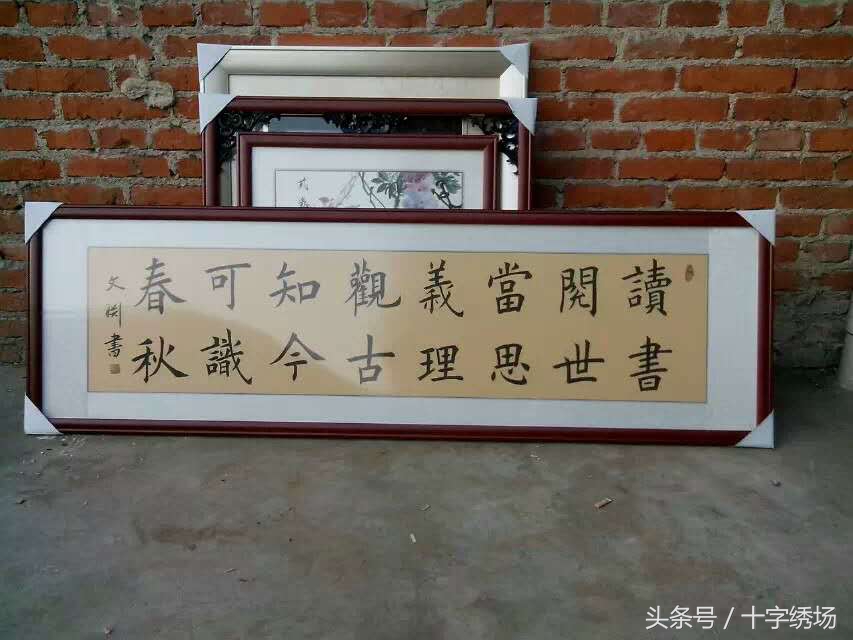 讀書
閱世
當思
義理
觀古
知今
可識
春秋
文 書
头条号 / 十字绣场